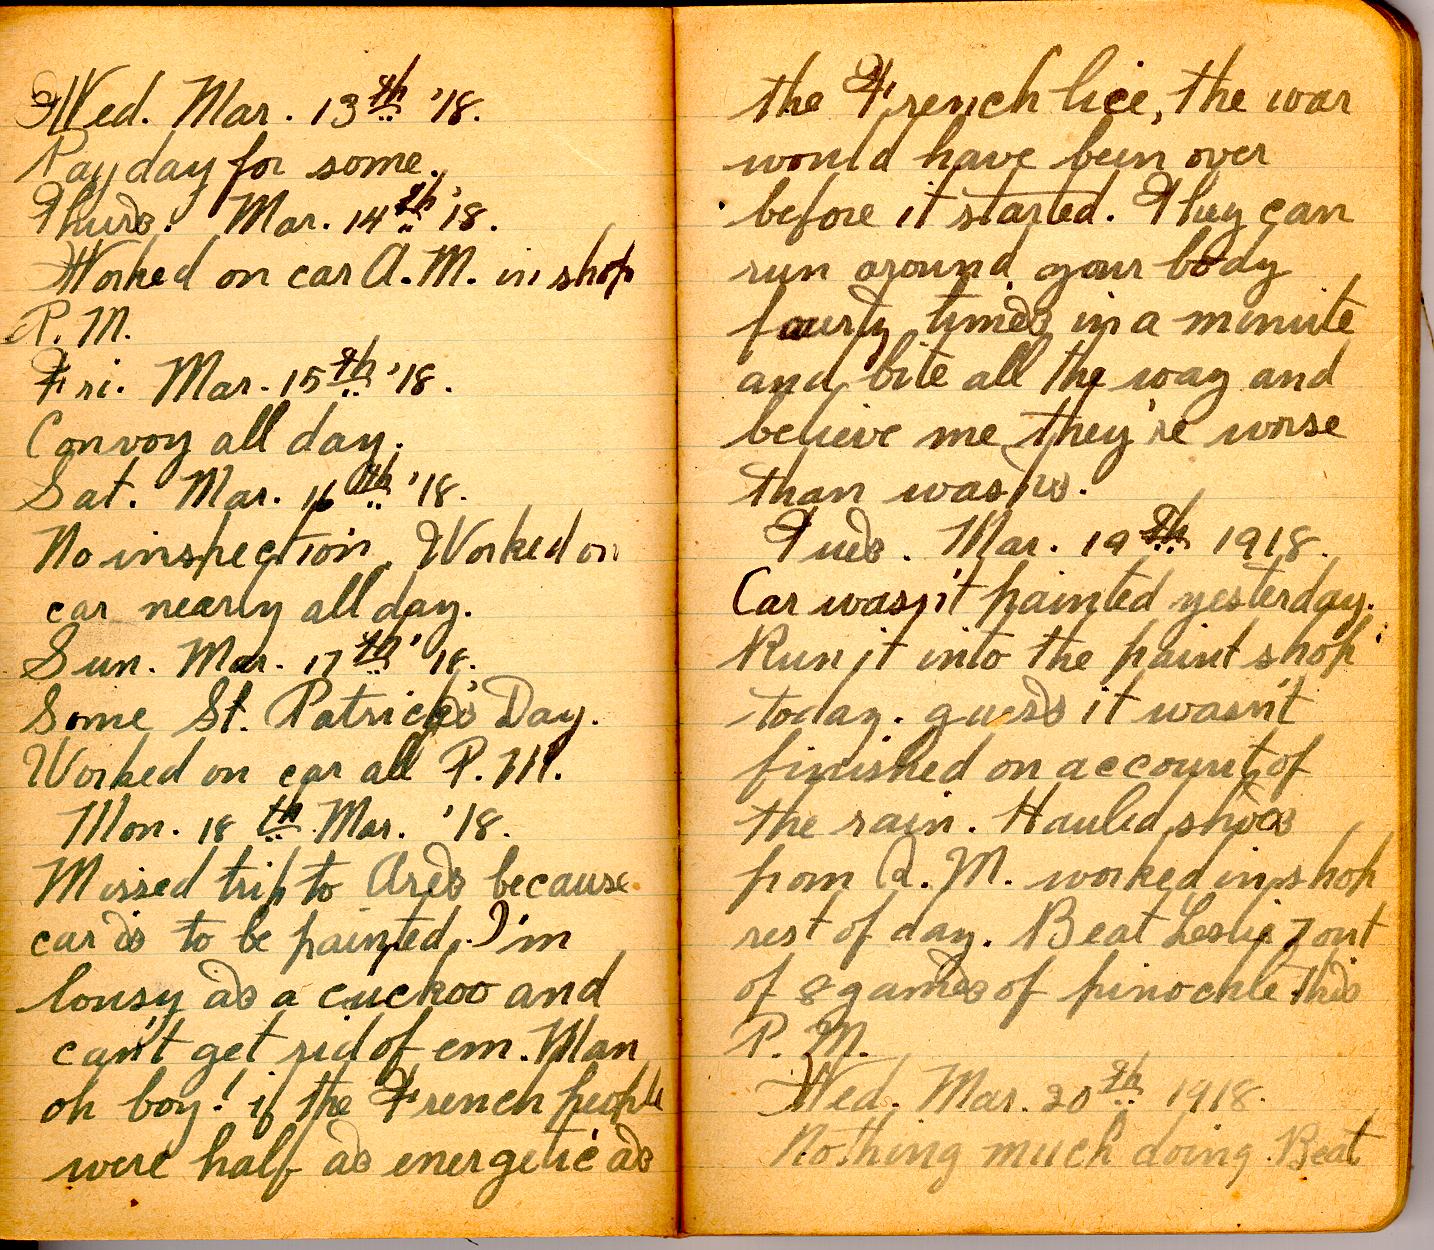 Wed. Mar. 13th '18.
Pay day for some.
Thurs. Mar. 14th '18.
Worked on car A.M. in shop
P.M.
Fri. Mar. 15th '18.
Convoy all day.
Sat. Mar. 16th '18.
No inspection. Worked on
car nearly all day.
Sun. Mar. 17th '18.
Some St. Patrick's Day.
Worked on car all P.M.
Mon. 18th Mar. '18.
Missed trip to because
car is to be painted. I'm
lousy as a cuckoo and
can't get rid of em. Man
oh boy! if the French people
were half as energetic as
the French lice, the war
would have been over
before it started. They can
run around your body
times in a minute
and bite all the way and
believe me they're worse
than wasps.
Tues. Mar. 19th 1918.
Car wasn't painted yesterday.
Run it into the paint shop
today. guess it wasn't
finished on account of
the rain. Hauled shoes
from A.M. worked in shop
rest of day. Beat Leslie 7 out
of 8 games of pinochle this
P.M.
Wed. Mar. 20th 1918.
Nothing much doing. Beat